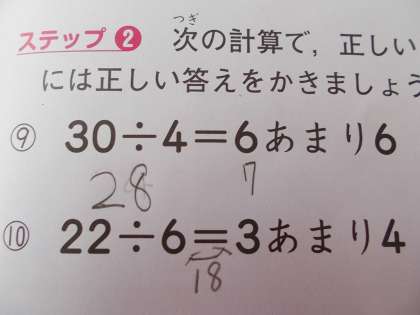 ステップ 2 次の計算で，正しい
つぎ
には正しい答えをかきましょう
⑨ 30÷4＝6あまり6
28 7
⑩ 22÷6＝3あまり4
18